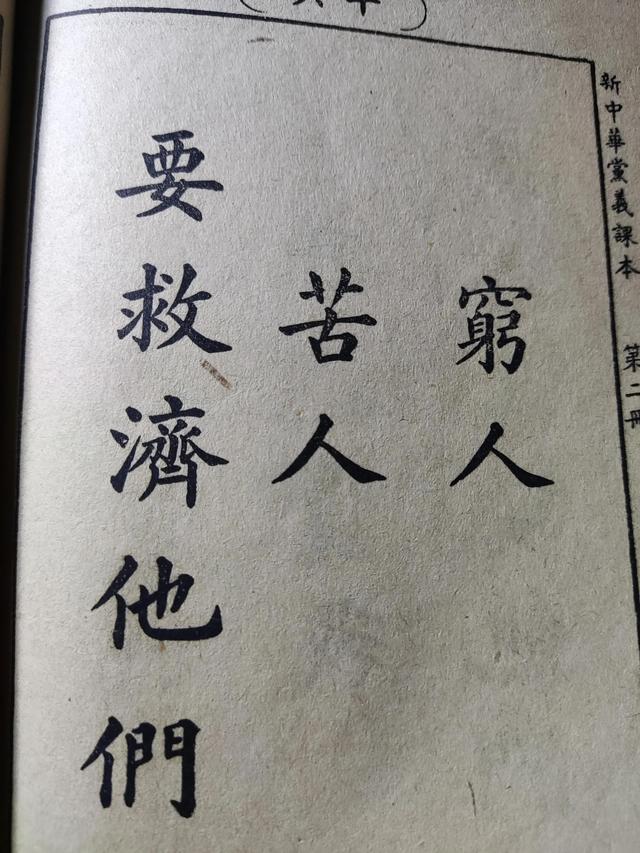 新中華黨義課本　第二冊
窮人
苦人
要救濟他們